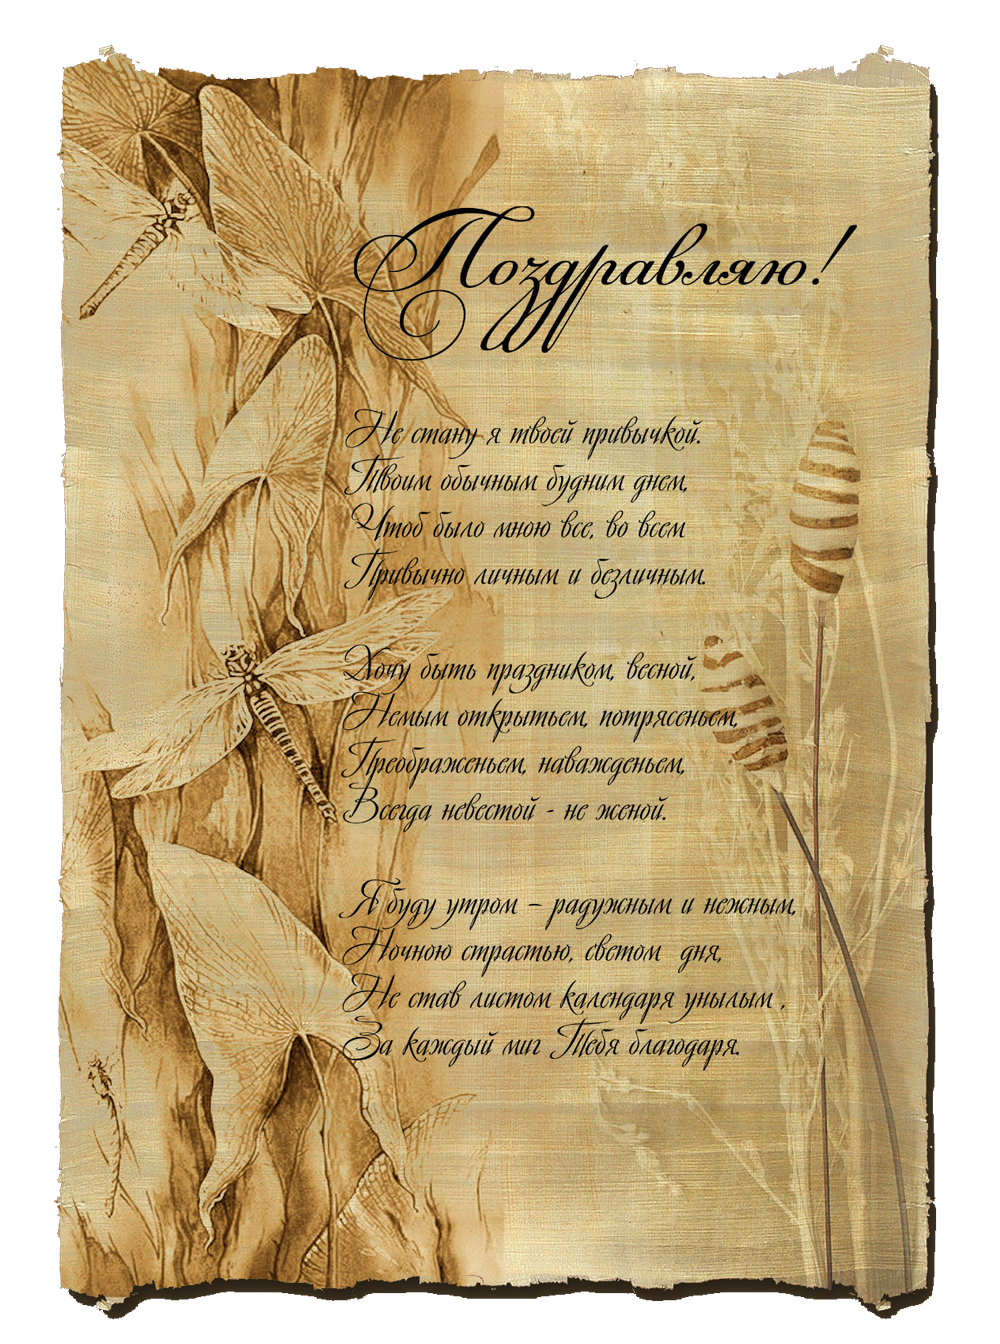 Поздравляю!
Не стану я твоей привычкой.
Твоим обычным будним днем,
Чтоб было мною все, во всем
Привычно личным и безличным.
Хочу быть праздником, весной,
Немым открытьем, потрясеньем,
Преображеньем, наважденьем,
Всегда невестой - не женой.
Я буду утром – радужным и нежным,
Ночною страстью, светом дня,
Не став листом календаря унылым ,
За каждый миг Тебя благодаря.